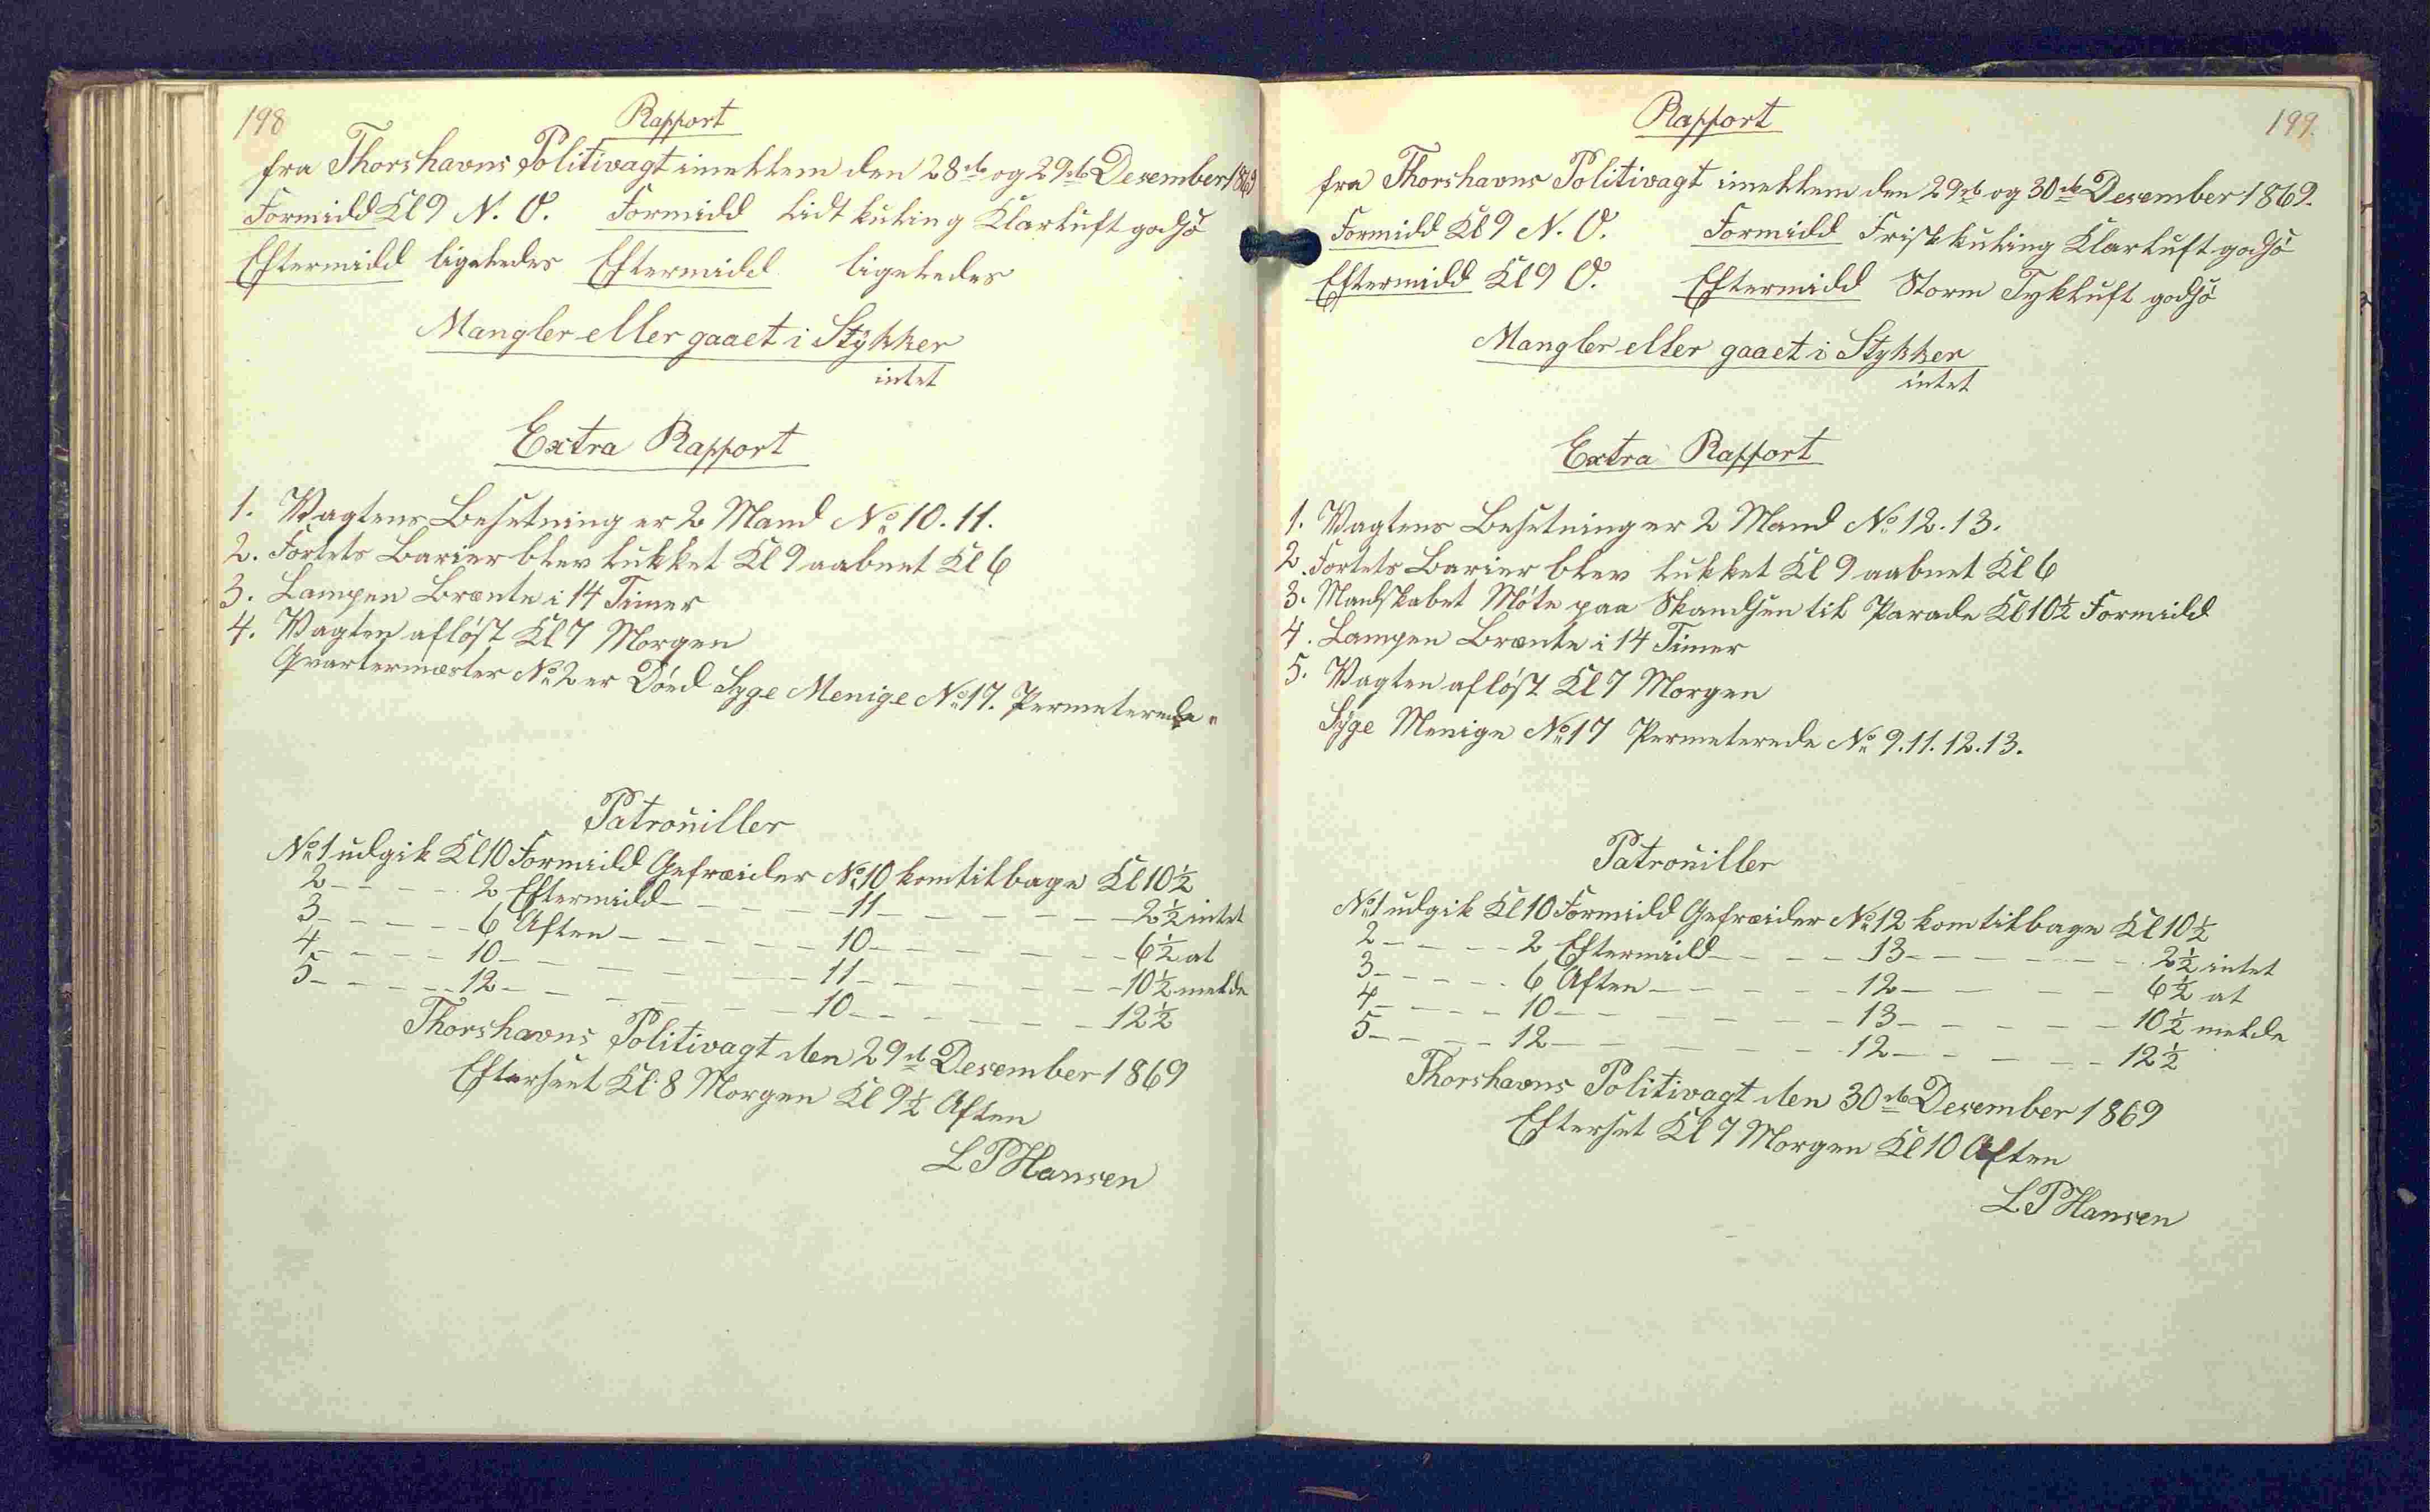 198
Rapport
fra Thorshavns Politivagt imellem den 28de og 29de Desember 1869
Formidd Kl 9 N. O. Formidd lidt kuling Klarluft godsö
Eftermidd ligeledes Eftermidd ligeledes
Mangler eller gaaet i Stykker
intet
Extra Rapport
1. Vagtens Besetning er 2 Mand No 10. 11.
2. Fortets Barier blev lukket Kl 9 aabnet Kl 6
3. Lampen Brænte i 14 Timer
4. Vagten aflöst Kl 7 Morgen
Qvartermæster No 2 er Döed Syge Menige No 17. Permeterede "
Patrouiller
No 1 udgik Kl 10 Formidd Gefreider No 10 kom tilbage Kl 10½
2 - - - - - 2 Eftermidd - - - - - 11 - - - - - - 2½ intet
3 - - - - - 6 Aften - - - - - 10 - - - - - - 6½ at
4 - - - - 10 - - - - - - 11 - - - - - - 10½ melde
5 - - - - - 12 - - - - - - 10 - - - - - - 12½
Thorshavns Politivagt den 29de Desember 1869
Efterseet Kl. 8 Morgen Kl 9½ Aften
L P Hansen
199.
Rapport
fra Thorshavns Politivagt imellem den 29de og 30de Desember 1869.
Formidd Kl 9 N. O. Formidd Frisk kuling Klarluft godsö
Eftermidd Kl 9 O. Eftermidd Storm Tykluft godsö
Mangler eller gaaet i Stykker
intet
Extra Rapport
1. Vagtens Besetning er 2 Mand No 12. 13.
2. Fortets Barier blev lukket Kl 9 aabnet Kl 6
3. Manskabet Möte paa Skandsen til Parade Kl 10½ Formidd
4. Lampen Brænte i 14 Timer
5. Vagten aflöst Kl 7 Morgen
Syge Menige No 17 Permeterede No 9. 11. 12. 13.
Patrouiller
No 1 udgik Kl 10 Formidd Gefreider No 12 kom tilbage Kl 10½
2 - - - - - 2 Eftermidd - - - - 13 - - - - - - 2½ intet
3 - - - - - 6 Aften - - - - - 12 - - - - - 6½ at
4 - - - - 10 - - - - - - 13 - - - - - 10½ melde
5 - - - - 12 - - - - - - 12 - - - - - 12½
Thorshavns Politivagt den 30de Desember 1869
Efterset Kl 7 Morgen Kl 10 Aften
L P Hansen